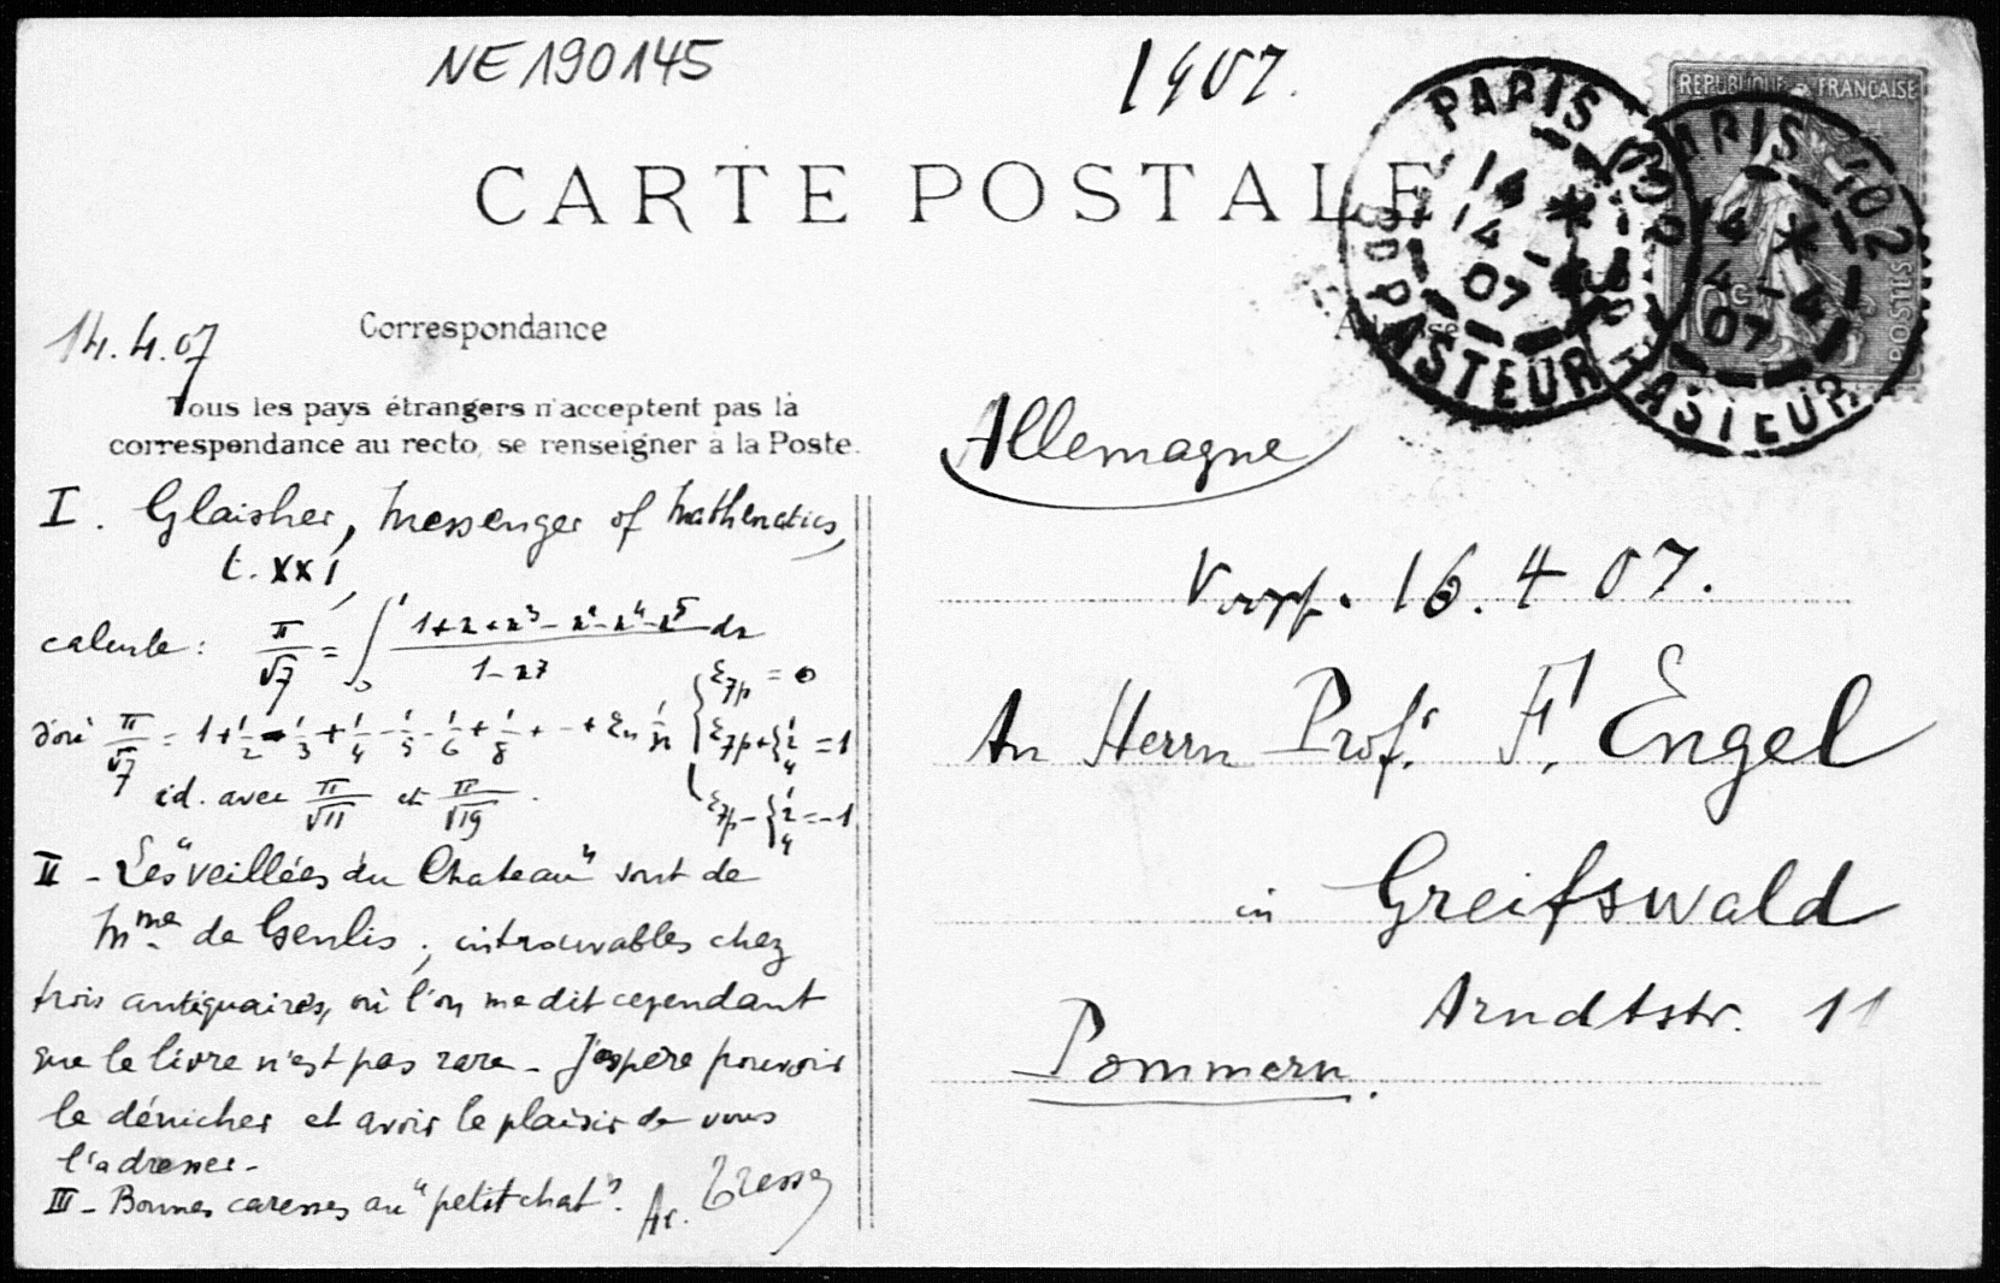 NE190145
1907.
CARTE POSTALE
RÉPUBLIQUE FRANÇAISE
POSTES
10c
PARIS 102
14 *
14 - 4
07
Bd PASTEUR
PARIS 102
14 *
14 - 4
07
Bd PASTEUR
14.4.07
Correspondance
Adresse
Tous les pays étrangers n'acceptent pas la
correspondance au recto, se renseigner à la Poste.
I. Glaisher, Messenger of Mathematics,
t. XXI,
calcule : π/√7 = ∫₀¹ (1+x+x³-x²-x⁴-x⁵)/(1-x⁷) dx
d'où π/√7 = 1+1/2-1/3+1/4-1/5-1/6+1/8+ - + εn 1/n { ε7p = 0
ε7p+{1 2 4 = 1
id. avec π/√11 et π/√19.
ε7p-{1 2 4 = -1
II - Les "Veillées du Chateau" sont de
Mme de Genlis ; introuvables chez
trois antiquaires, où l'on me dit cependant
que le livre n'est pas rare - J'espère pouvoir
le dénicher et avoir le plaisir de vous
l'adresser -
III - Bonnes caresses au "petit chat". Ar. Tresse
Allemagne
16.4 07.
An Herrn Prof. F. Engel
in Greifswald
Arndtstr. 11
Pommern.